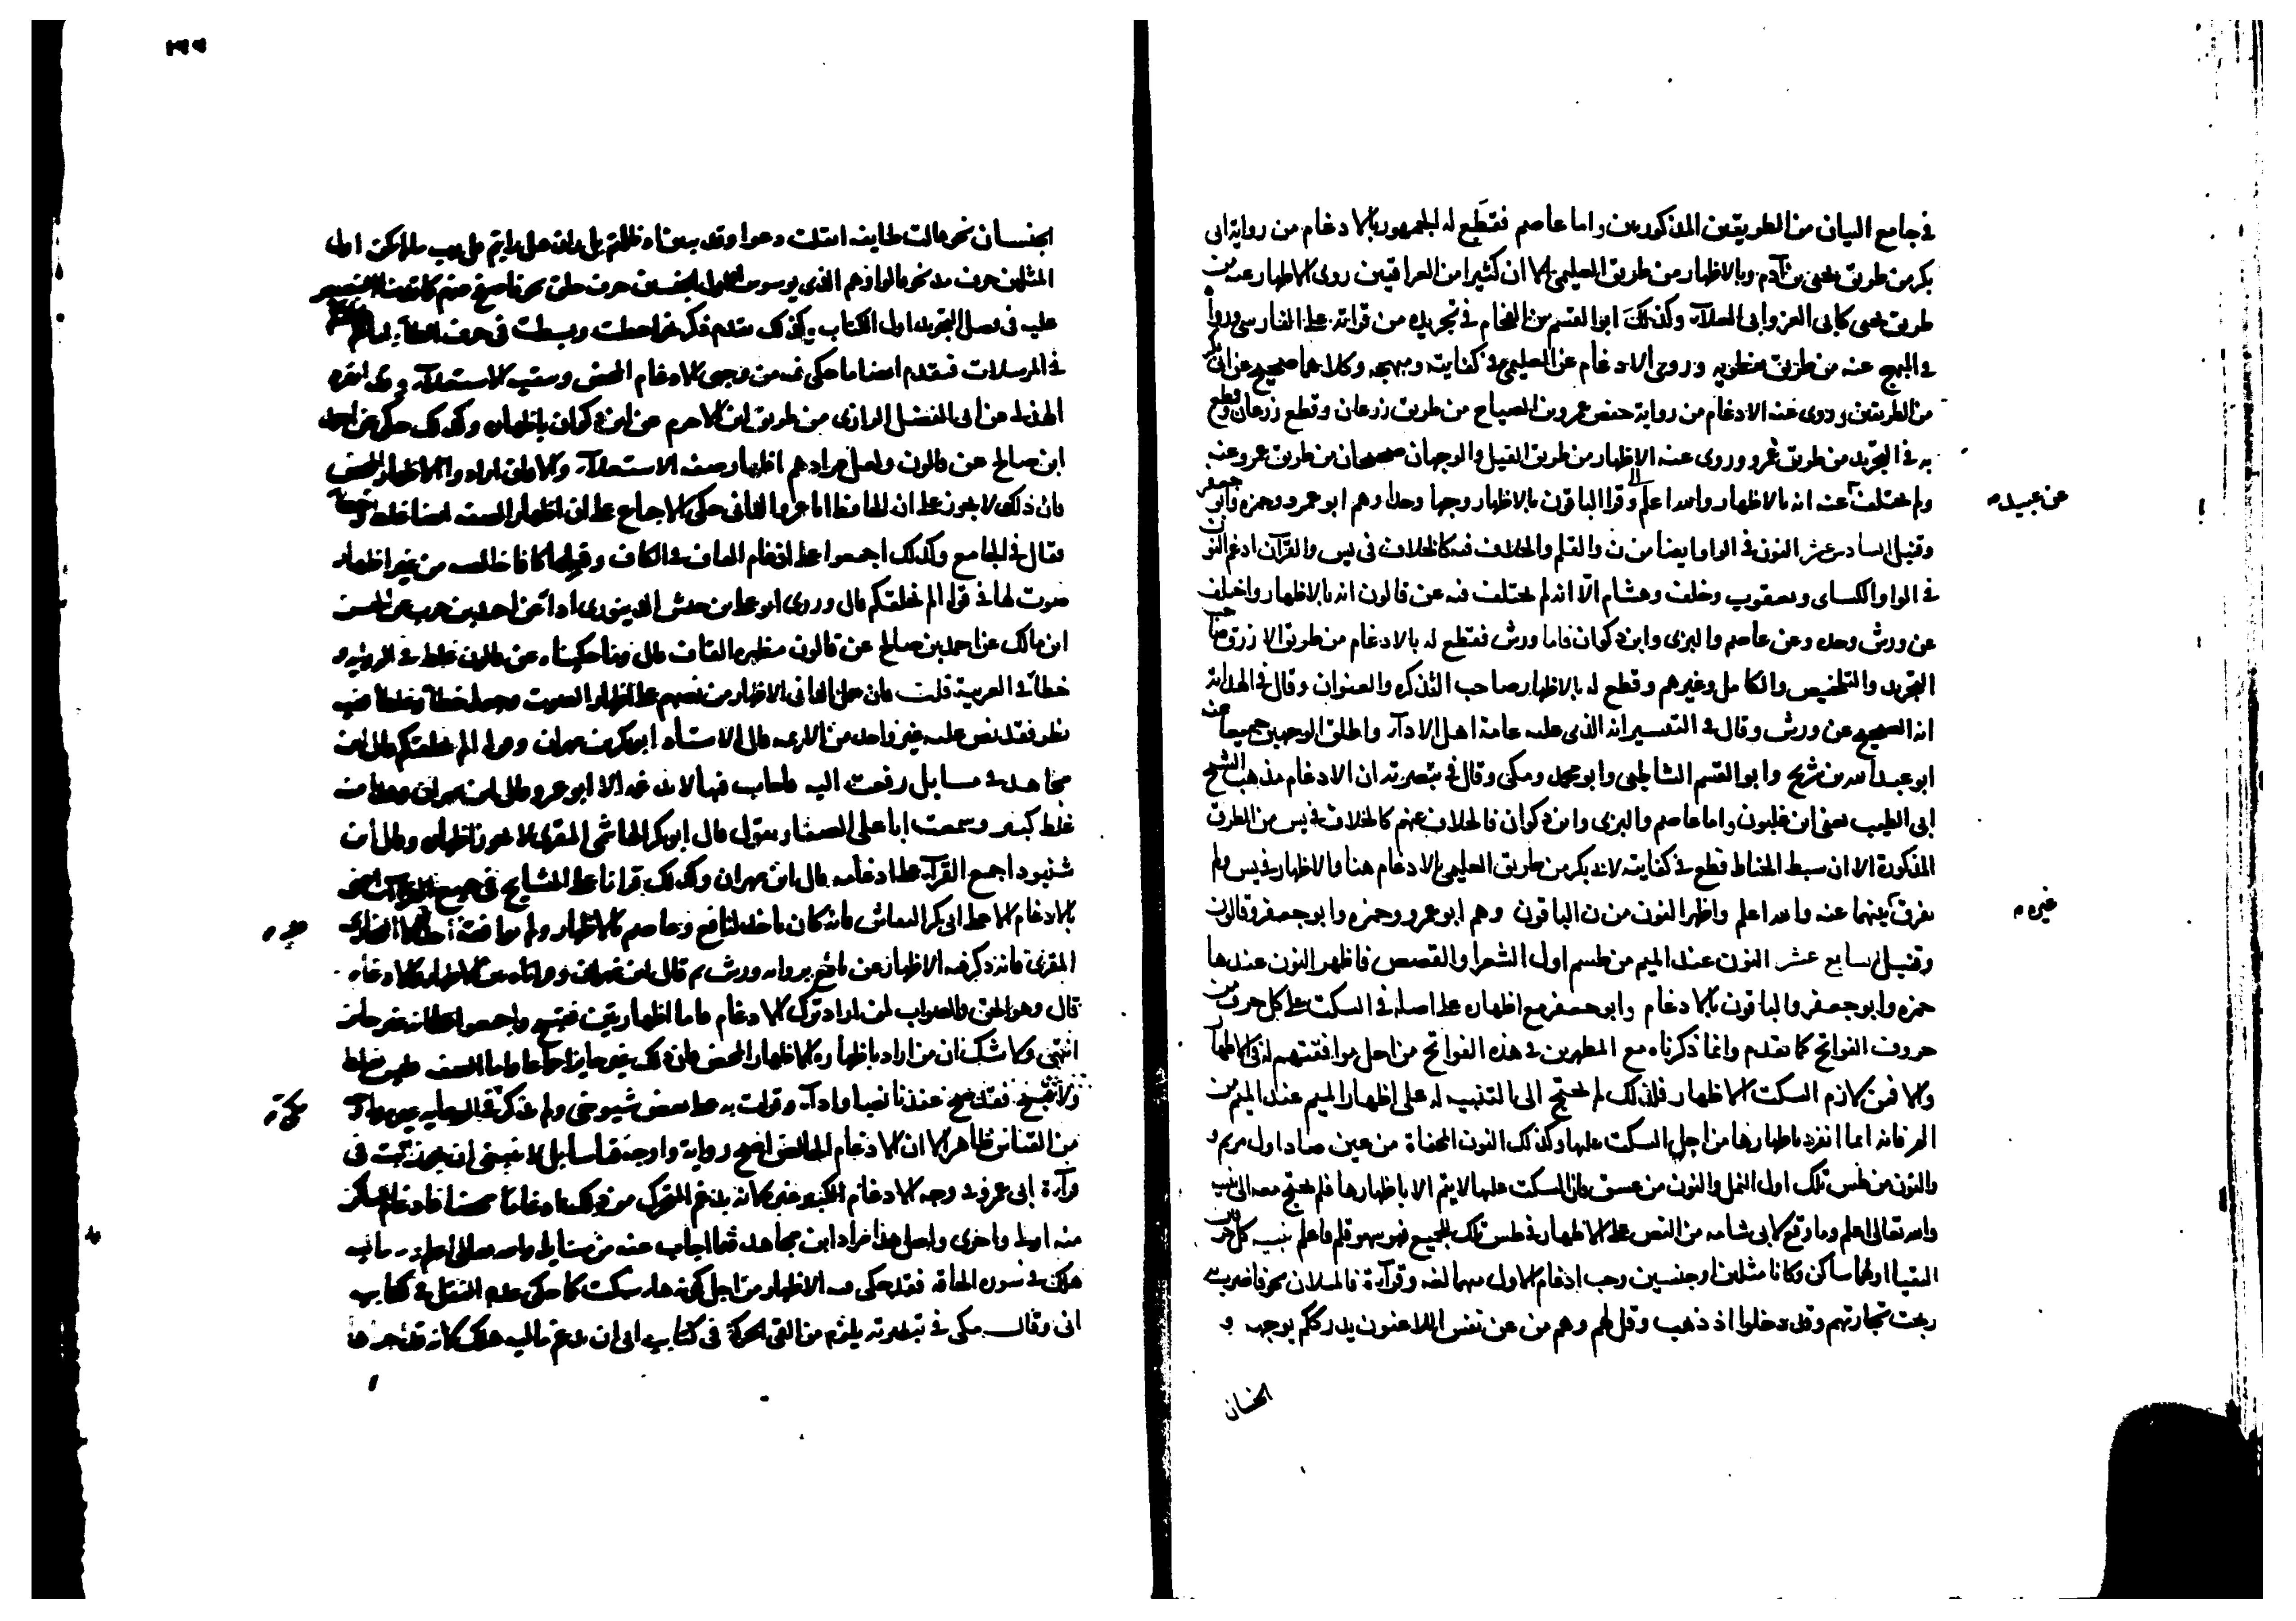 في جامع البيان من الطريقين المذكورين واما عاصم فقطع له الجمهور بالادغام من رواية ابي
بكر من طريق يحيى بن آدم وبالاظهار من طريق العليمي الا ان كثيرا من العراقيين روى الاظهار عنه من
طريق يحيى كابي العز وابي العلآء وكذلك ابو القسم بن الفحام في تجريده من قراته على الفارسي وروا
في المبهج عنه من طريق نفطويه وروى الادغام عن العليمي في كفايته ومبهجه وكلاهما صحيح عن ابي بكر
من الطريقين وروى عنه الادغام من رواية حفص عمرو بن الصباح من طريق زرعان وقطع
به في التجريد من طريق عمرو وروى عنه الاظهار من طريق الفيل والوجهان صحيحان من طريق عمرو عنه
ولم يختلف عنه انه بالاظهار والله اعلم وقرا الباقون بالاظهار وجها واحدا وهم ابو عمرو وحمزه وابو جعفر
عن عبيد
وقنبل السادس عشر النون في الواو ايضا من ن والقلم والخلاف فيه كالخلاف في يس والقرآن ادغم النون
في الواو الكساي ويعقوب وخلف وهشام الا انه لم يختلف فيه عن قالون انه بالاظهار واختلف
عن ورش وحده وعن عاصم والبزي وابن ذكوان فاما ورش فقطع له بالادغام من طريق الازرق صاحب
التجريد والتلخيص والكامل وغيرهم وقطع له بالاظهار صاحب التذكره والعنوان وقال في الهداية
انه الصحيح عن ورش وقال في التيسير انه الذي عليه عامة اهل الادآء واطلق الوجهين جميعا عنه
ابو عبد الله بن شريح وابو القسم الشاطبي وابو محمد ومكي وقال في تبصرته ان الادغام مذهب الشيخ
ابي الطيب يعني ابن غلبون واما عاصم والبزي وابن ذكوان فالخلاف عنهم كالخلاف في يس من الطرق
المذكورة الا ان سبط الخياط قطع في كفايته لابي بكر من طريق العليمي بالادغام هنا والاظهار في يس ولم
يفرق بينهما عنه والله اعلم واظهر النون من ن الباقون وهم ابو عمرو وحمزه وابو جعفر وقالون
غيره
وقنبل السابع عشر النون عند الميم من طسم اول الشعرا والقصص فاظهر النون عندها
حمزه وابو جعفر والباقون بالادغام وابو جعفر مع اظهاره على اصله في السكت على كل حرف من
حروف الفواتح كما تقدم وانما ذكرناه مع المظهرين في هذه الفواتح من اجل موافقتهم له في الاظهار
والا فمن لازم السكت الاظهار فلذلك لم يحتج الى التنبيه له على اظهار الميم عند الميم من
الم فانه انما انفرد باظهارها من اجل السكت عليها وكذلك النون المخفاة من عين صاد اول مريم و
والنون من طس تلك اول النمل والنون من عسق فان السكت عليها لا يتم الا باظهارها فلم يحتج معه الى تنبيه
والله تعالى اعلم وما وقع لابي شامه من النص على الاظهار في طس تلك للجميع فهو سهو قلم فاعلم تنبيه كل حرفين
التقيا اولهما ساكن وكانا مثلين او جنسين وجب ادغام الاول منهما لغه وقرآءة فالمثلان نحو فاضرب به
ربحت تجارتهم وقد دخلوا اذ ذهب وقل لهم وهم من عن نفس اللاعنون يدرككم يوجهه و
الجنسان
الجنسان نحو قالت طايفه اثقلت دعوا وقد تبين اذ ظلمتم بل ران هل رايتم قل رب ما لم يكن اول
المثلين حرف مد نحو قالوا وهم الذي يوسوس او اول الجنسين حرف حلق نحو فاصفح عنهم كما قدمنا التنصيص
عليه في فصل التجويد اول الكتاب وكذلك تقدم ذكر نحو احطت وبسطت في حرف الطآء
في المرسلات فتقدم ايضا ما حكي فيه من وجهي الادغام المحض وتبقيه الاستعلآء وقد انفرد
الهذلي عن ابي الفضل الرازي من طريق ابن الاخرم عن ابن ذكوان باظهاره وكذلك حكي عن احمد
ابن صالح عن قالون ولعل مرادهم اظهار صفه الاستعلآء والا فان ارادوا الاظهار المحض
فان ذلك لا يجوز على ان الحافظ ابا عمرو الداني حكى الاجماع على ان اظهار الصفه ايضا غلط وخطآء
فقال في الجامع وكذلك اجمعوا على ادغام القاف في الكاف وقلبها كافا خالصه من غير اظهار
صوت لها في قوله الم نخلقكم قال وروى ابو علي بن حبش الدينوري اداءً عن احمد بن حرب عن الحسن
ابن مالك عن احمد بن صالح عن قالون مظهره القاف قال وما حكيناه عن قالون غلط في الروايه و
خطأ في العربية قلت فان حمل الداني الاظهار من نصهم على اظهار الصوت وجعله خطأ وغلطا ففيه
نظر فقد نص عليه غير واحد من الايمه قال الاستاذ ابو بكر بن مهران وقوله الم نخلقكم قال ابن
مجاهد في مسايل رفعت اليه فاجاب فيها لا يدغمه الا ابو عمرو قال ابن مهران وهذا منه
غلط كبير وسمعت ابا علي الصفار يقول قال ابو بكر الهاشمي المقري لا يجوز اظهاره وقال ابن
شنبوذ اجمع القرآء على ادغامه قال ابن مهران وكذلك قرانا على المشايخ في جميع القرآات اعني
بالادغام الا على ابي بكر النقاش فانه كان ياخذ لنافع وعاصم بالاظهار ولم يوافقه احد الا البخاري
المقري فانه ذكر فيه الاظهار عن نافع بروايه ورش ثم قال ابن مهران وقراناه بين الاظهار والادغام
قال وهو الحق والصواب لمن اراد ترك الادغام فاما اظهار بين فقبيح واجمعوا على انه غير جايز
انتهى ولا شك ان من اراد باظهاره الاظهار المحض فان ذلك غير جايز اجماعا واما الصفه فليس بغلط
ولا قبيح فقد صح عندنا نصا وادآء وقرات به على بعض شيوخي ولم يذكر
من القنا ظاهر الا ان الادغام الخالص اصح رواية واوجه قياسا بل لا ينبغي ان يجوز البته في
قرآءة ابي عمرو في وجه الادغام الكبير غيره لانه يدغم المتحرك من ذلك ادغاما محضا فادغام الساكن
منه اولى واحرى ولعل هذا مراد ابن مجاهد فيما اجاب عنه من مسايله والله تعالى اعلم واما ماليه
هلك في سوره الحاقه فقد حكي فيه الاظهار من اجل كونه هاء سكت كما حكي عدم النقل في كتابيه
اني وقال مكي في تبصرته يلزم من القى الحركة في كتابيه اني ان يدغم ماليه هلك لانه قد اجراها